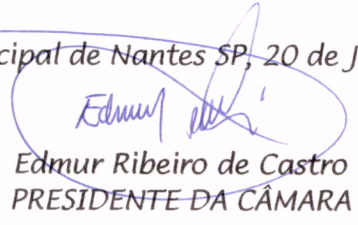 cipal de Nantes SP, 20 de J
Edmur
Edmur Ribeiro de Castro
PRESIDENTE DA CÂMARA